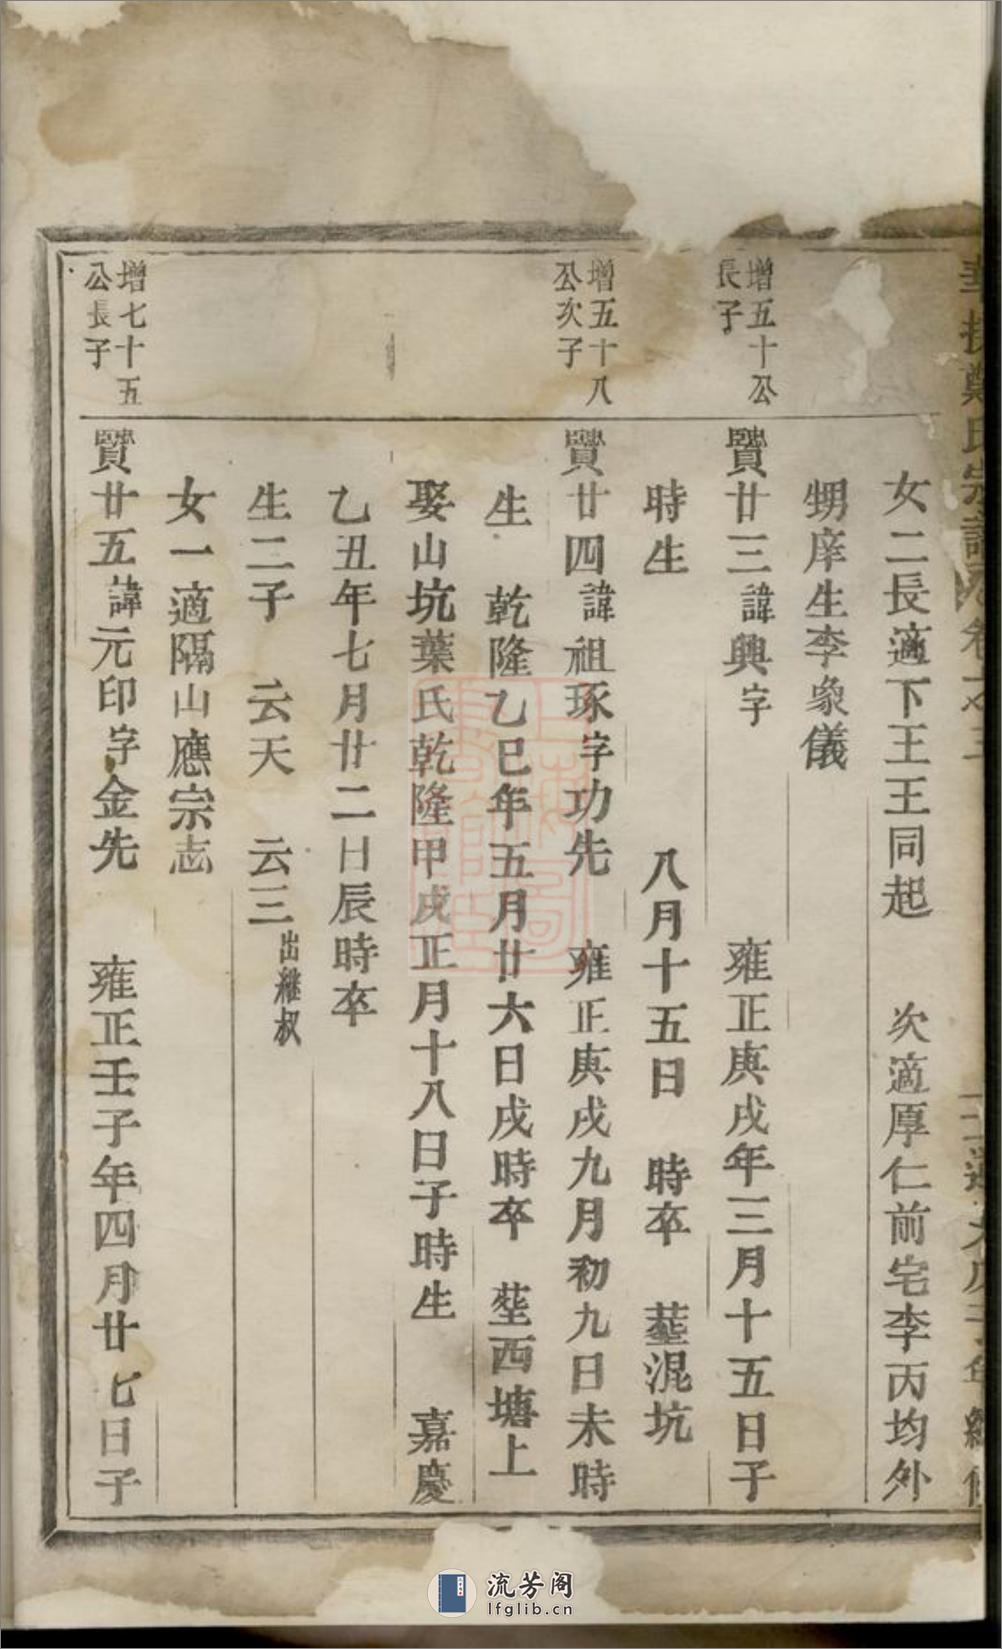 鄭氏宗譜
女二長適下王王同起 次適厚仁前宅李丙均外
甥庠生李象儀
增五十公
長子
賢廿三諱興字 雍正庚戌年三月十五日子
時生 八月十五日 時卒 塟混坑
增五十八
公次子
賢廿四諱祖琢字功先 雍正庚戌九月初九日未時
生 乾隆乙巳年五月廿六日戌時卒 塟西塘上
娶山坑葉氏乾隆甲戌正月十八日子時生 嘉慶
乙丑年七月廿二日辰時卒
生二子 云天 云三出継叔
女一適隔山應宗志
增七十五
公長子
賢廿五諱元印字金先 雍正壬子年四月廿七日子
流芳阁
lfglib.cn